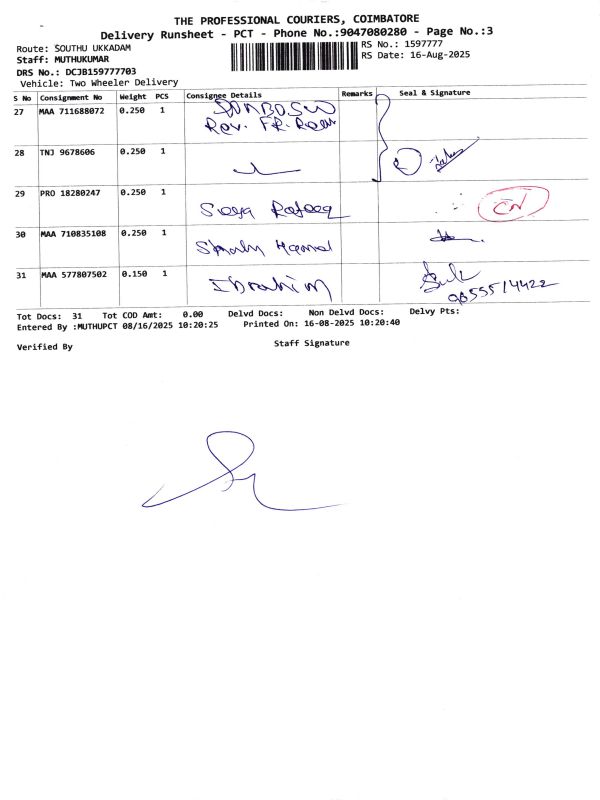 THE PROFESSIONAL COURIERS, COIMBATORE
Delivery Runsheet - PCT - Phone No.:9047080280 - Page No.:3
Route: SOUTHU UKKADAM
RS No.: 1597777
Staff: MUTHUKUMAR
RS Date: 16-Aug-2025
DRS No.: DCJB159777703
Vehicle: Two Wheeler Delivery
S No Consignment No Weight PCS Consignee Details Remarks Seal & Signature
27 MAA 711688072 0.250 1 DONBOSCO
Rev. FR.
28 TNJ 9678606 0.250 1
29 PRO 18280247 0.250 1 CN
Rafeeq
30 MAA 710835108 0.250 1
31 MAA 577807502 0.150 1 Ibrahim
Tot Docs: 31 Tot COD Amt: 0.00 Delvd Docs: Non Delvd Docs: Delvy Pts:
Entered By :MUTHUPCT 08/16/2025 10:20:25 Printed On: 16-08-2025 10:20:40
Verified By Staff Signature